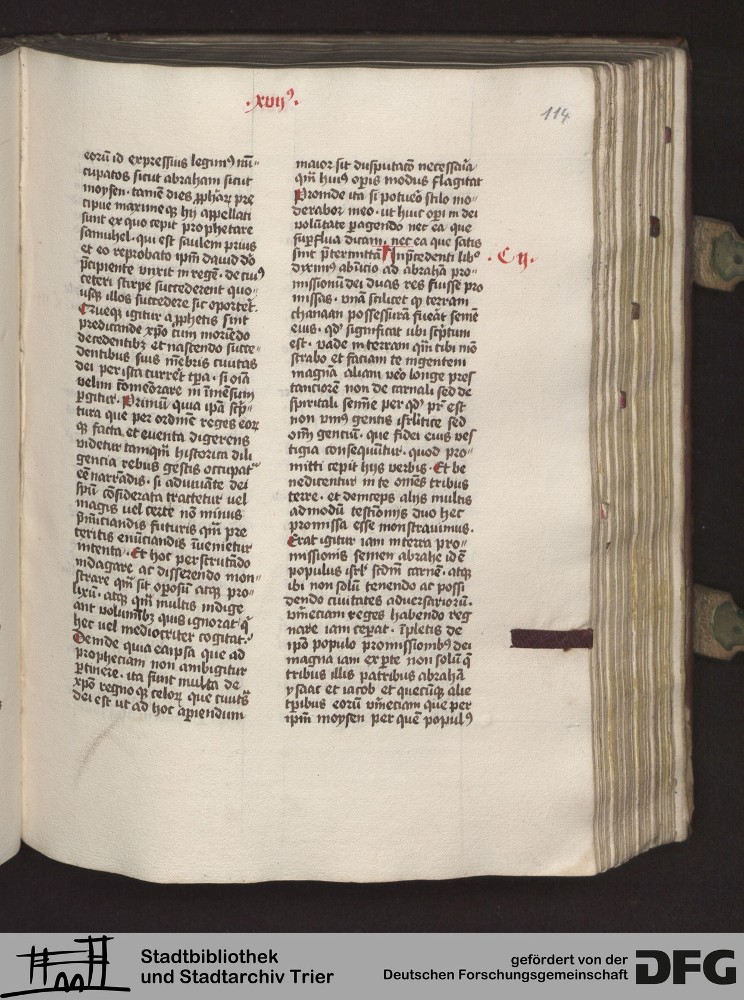 .xvij⁹.
114
eorū id expressius legim⁹ nū-
cupatos sicut abraham sicut
moysen. tamē dies ꝓphāꝝ pre
cipue maxime qȝ hij appellati
sunt ex quo cepit prophetare
samuhel. qui est saulem prius
et eo reprobato ipm̄ dauid dō
p̄cipiente vnxit in regē. de cui⁹
ceteri stirpe succederent quo-
usqȝ illos succedere sic oportet.
predicande xp̄o cum moriēdo
decedentibȝ et nascendo succe-
dentibus suis mēbris ciuitas
dei per ista curreret tp̄a. si oīa
velim cōmeōrare in īmēsum
ꝑgitur. Primū quia ipā sc̄p-
tura que per ordinē reges eoꝝ
qȝ facta et euenta digerens
videtur tamqm̄ historica dili
gencia rebus gestis occupata
eē narrādis. si adiuuāte dei
spū cōsiderata tractetur vel
magis vel certe nō minus
p̄nūciandis futuris qm̄ pre
teritis enūciandis īuenietur
intenta. Et hoc perscrutādo
indagare ac disserendo mon-
strare qm̄ sit oꝑosū atqȝ pro-
lixū. atqȝ qm̄ multis indige
ant volumībȝ quis ignorat q̄
hec vel mediocriter cogitat.
Deinde quia ea ipsa que ad
propheciam non ambigitur
ꝑtinere. ita sunt multa de
xp̄o regno qȝ celoꝝ que ciuitas
dei est ut ad hoc aꝑiendum
maior sit disputacō necessaria
qm̄ hui⁹ oꝑis modus flagitat
Proinde ita si potuero stilo mo-
derabor meo. ut huic oꝑi in dei
volūtate ꝑagendo nec ea que
suꝑflua dicam. nec ea que satis
sint p̄termittā In p̄cedenti libo
.C ij.
diximus ab inicio ad abrahā pro-
missionū dei duas res fuisse pro
missas. vnā scilicet qȝ terram
chanaan possessurū fuerat semē
eius. qd' significat ubi scriptum
est. vade in terram qm̄ tibi mō
strabo et faciam te in gentem
magnā aliam vero longe pres
tanciorē non de carnali sed de
spirituali semīe per qd' pr̄ est
non vni⁹ gentis isrlitice sed
om̄ gentiū. que fidei eius ves
tigia consequūtur. quod pro-
mitti cepit hijs verbis. Et be
nedicentur in te om̄es tribus
terre. et deinceps alijs multis
admodū testimonijs duo hec
promissa esse monstrauimus.
Erat igitur iam in terra pro-
missionis semen abrahe id ē
populus isrl' scdm̄ carnē. atqȝ
ibi non solū tenendo ac possi
dendo ciuitates aduersariorū.
verūeciam reges habendo reg
nare iam ceperat. īpletis de
ipō populo promissionibȝ dei
magna iam ex ꝑte non solū q̄
tribus illis patribus abrahā
ysaac et iacob et quecūqȝ alie
tꝑibus eorū verūeciam que per
ipm̄ moysen per quē popul⁹
Stadtbibliothek
und Stadtarchiv Trier
gefördert von der
Deutschen Forschungsgemeinschaft
DFG